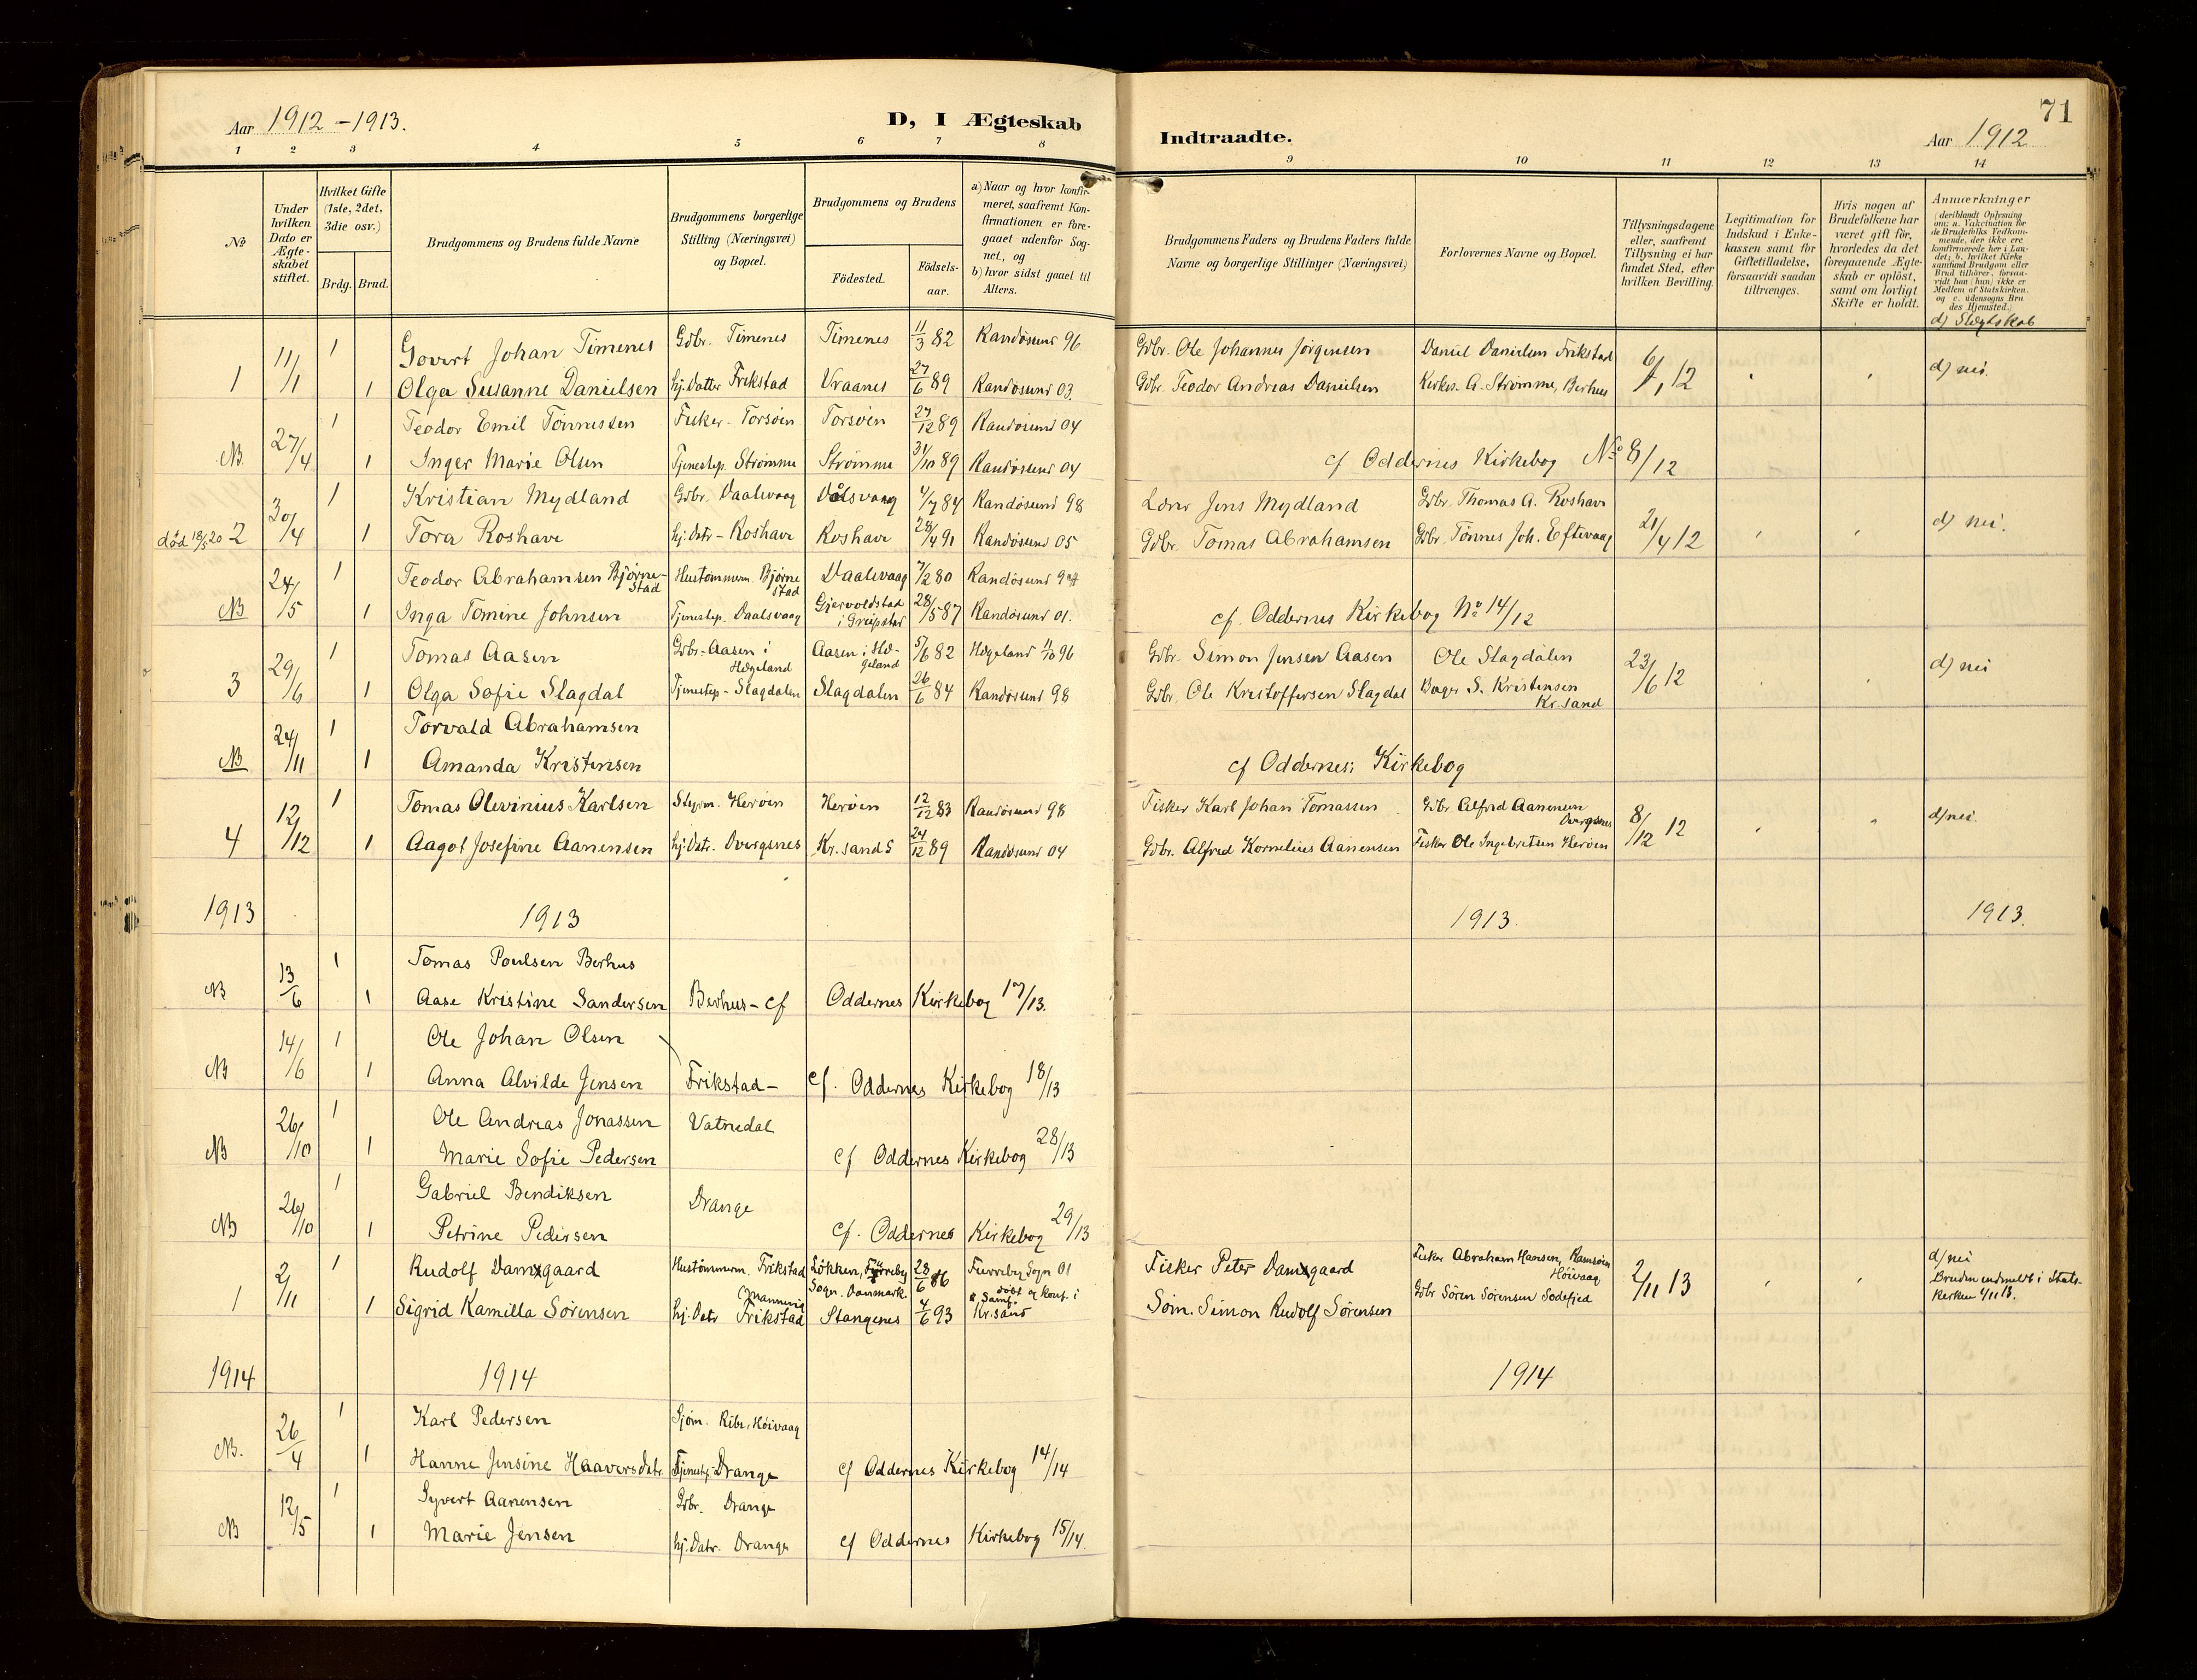 Aar 1912 - 1913.
D, I Ægteskab
Indtraadte.
71
Aar 1912
1 2 3 4 5 6 7 8 9 10 11 12 13 14
№
Under hvilken Dato er Ægteskabet stiftet.
Hvilket Gifte (1ste, 2det, 3die osv.)
Brdg. Brud.
Brudgommens og Brudens fulde Navne
Brudgommens borgerlige Stilling (Næringsvei) og Bopæl.
Brudgommens og Brudens
Födested.
Födselsaar.
a) Naar og hvor konfirmeret, saafremt Konfirmationen er foregaaet udenfor Sognet, og
b) hvor sidst gaaet til Alters.
Brudgommens Faders og Brudens Faders fulde Navne og borgerlige Stillinger (Næringsvei)
Forlovernes Navne og Bopæl.
Tillysningsdogene eller, saafremt Tillysning ei har fundet Sted, efter hvilken Bevilling.
Legitimation for Indskud i Enkekassen samt for Giftetilladelse, forsaavidt saadan tiltrænges.
Hvis nogen af Brudefolkene har været gift för, hvorledes da det foregaaende Ægteskab er oplöst, samt om lovligt Skifte er holdt.
Anmærkninger
(deriblandt Oplysning om: a. Vakcination for de Brudefolks Vedkommende, der ikke ere konfirmerede her i Landet; b. hvilket Kirkesamfund Brudgom eller Brud tilhörer, forsaavidt han (hun) ikke er Medlem af Statskirken, og c. udensogns Brudes Hjemsted.)
d) Slægtskab
1 11/1 1 Govert Johan Timenes Gdbr. Timenes Timenes 11/3 82 Randøsund 96 Gdbr. Ole Johannes Jørgensen Daniel Danielsen Frikstad 6/1 12 d) nei.
1 Olga Susanne Danielsen hj. Datter Frikstad Vraanes 27/6 89 Randøsund 03. Gdbr. Teodor Andreas Danielsen Kirkes. A. Strømme, Berhus
NB 27/4 1 Teodor Emil Tönnessen Fisker - Torsøen Torsøen 27/12 89 Randøsund 04
1 Inger Marie Olsen Tjenestep. Strømme Strømme 31/10 89 Randøsund 04 cf Oddernes Kirkebog No 8/12
død 18/5 20 2 30/4 1 Kristian Mydland Gdbr. Daalsvaag Dålsvaag 4/7 84 Randøsund 98 Jens Mydland Gdbr. Thomas A. Roshavn 21/4 12 d) nei.
1 Tora Roshavn hj. Datr - Roshavn Roshavn 28/4 91 Randøsund 05 Gdbr. Tomas Abrahamsen Gdbr. Tönnes Joh. Eftevaag
NB 24/5 1 Teodor Abrahamsen Bjørnestad Hustømmerm. Bjørnestad Daalsvaag 7/2 80 Randøsund 94
1 Inga Tomine Johnsen Tjenestep. Daalsvaag Gjervoldstad i Greipstad 28/5 87 Randøsund 01. cf. Oddernes Kirkebog No 14/12
3 29/6 1 Tomas Aasen Gdbr. - Aasen i Hægeland Aasen i Hægeland 5/6 82 Hægeland 11/10 96 Gdbr. Simon Jensen Aasen Ole Slagdalen 23/6 12 d) nei
1 Olga Sofie Slagdal Tjenestep - Slagdalen Slagdalen 26/6 84 Randøsund 98 Gdbr. Ole Kristoffersen Slagdal Bager S. Kristensen Kr.sand
NB 24/11 1 Torvald Abrahamsen
1 Amanda Kristensen cf Oddernes; Kirkebog
4 12/12 1 Tomas Olevinius Karlsen Styrm. Herøen Herøen 12/12 83 Randøsund 98 Fisker Karl Johan Tomassen Gdbr. Alfred Aanensen Dvergsnes 8/12 12 d) nei.
1 Aagot Josefine Aanensen hj. Datr. Dvergsnes Kr.sand S 24/12 89 Randøsund 04 Gdbr. Alfred Kornelius Aanensen Fisker Ole Ingebretsen Herøen
1913 1913 1913. 1913.
NB 13/6 1 Tomas Poulsen Berhus
1 Aase Kristine Sandersen Berhus - cf Oddernes Kirkebog 17/13.
NB 14/6 1 Ole Johan Olsen
1 Anna Alvilde Jensen Frikstad - cf. Oddernes Kirkebog 18/13
NB 26/10 1 Ole Andreas Jonassen Vatnedal
1 Marie Sofie Pedersen cf Oddernes Kirkebog 28/13
NB 26/10 1 Gabriel Bendiksen Drange
1 Petrine Pedersen cf. Oddernes Kirkebog 29/13
1 2/11 1 Rudolf Damsgaard Hustømmerm. Frikstad Løkken, Furreby Sogn. Danmark. 28/6 86 Furreby Sogn 01 Fisker Peter Damsgaard Fisker Abraham Hansen, Ramsøen Høivaag 2/11 13 d) nei
1 Sigrid Kamilla Sørensen hj. Datr Frikstad Stangenes 4/6 93 døbt og konf. i Kr.sand Søm. Simon Rudolf Sørensen Gdbr Sören Sörensen Sodefjed Bruden indmeldt i Statskirken 1/11 13.
1914 1914 1914
NB. 26/4 1 Karl Pedersen Sjøm. Ribe, Høivaag
1 Hanne Jensine Haaversdatr. Tjenestp. Drange cf Oddernes Kirkebog 14/14
NB 12/5 1 Syvert Aanensen Gdbr. Drange
1 Marie Jensen hj. Datr. Drange cf Oddernes Kirkebog 15/14.